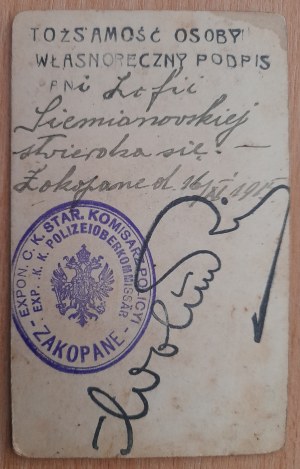 TOŻSAMOŚĆ OSOBY
WŁASNORĘCZNY PODPIS
PNI Zofii
Siemianowskiej
stwierdza się. —
Zakopane d. 16/XI 191
EXPON. C. K. STAR. KOMISARZ POLICYI
EXP. K. K. POLIZEIOBERKOMMISSÄR
- ZAKOPANE -